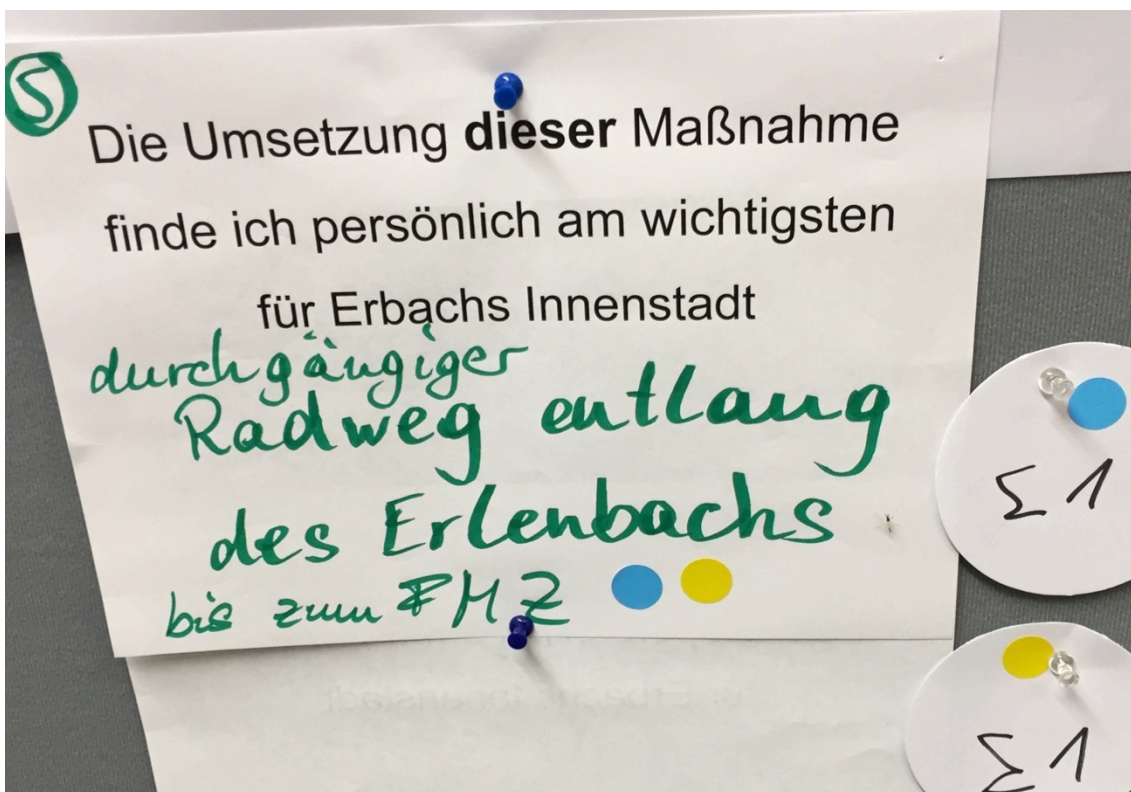 5
Die Umsetzung dieser Maßnahme
finde ich persönlich am wichtigsten
für Erbachs Innenstadt
durchgängiger
Radweg entlang
des Erlenbachs
bis zum FMZ
Σ 1
Σ 1